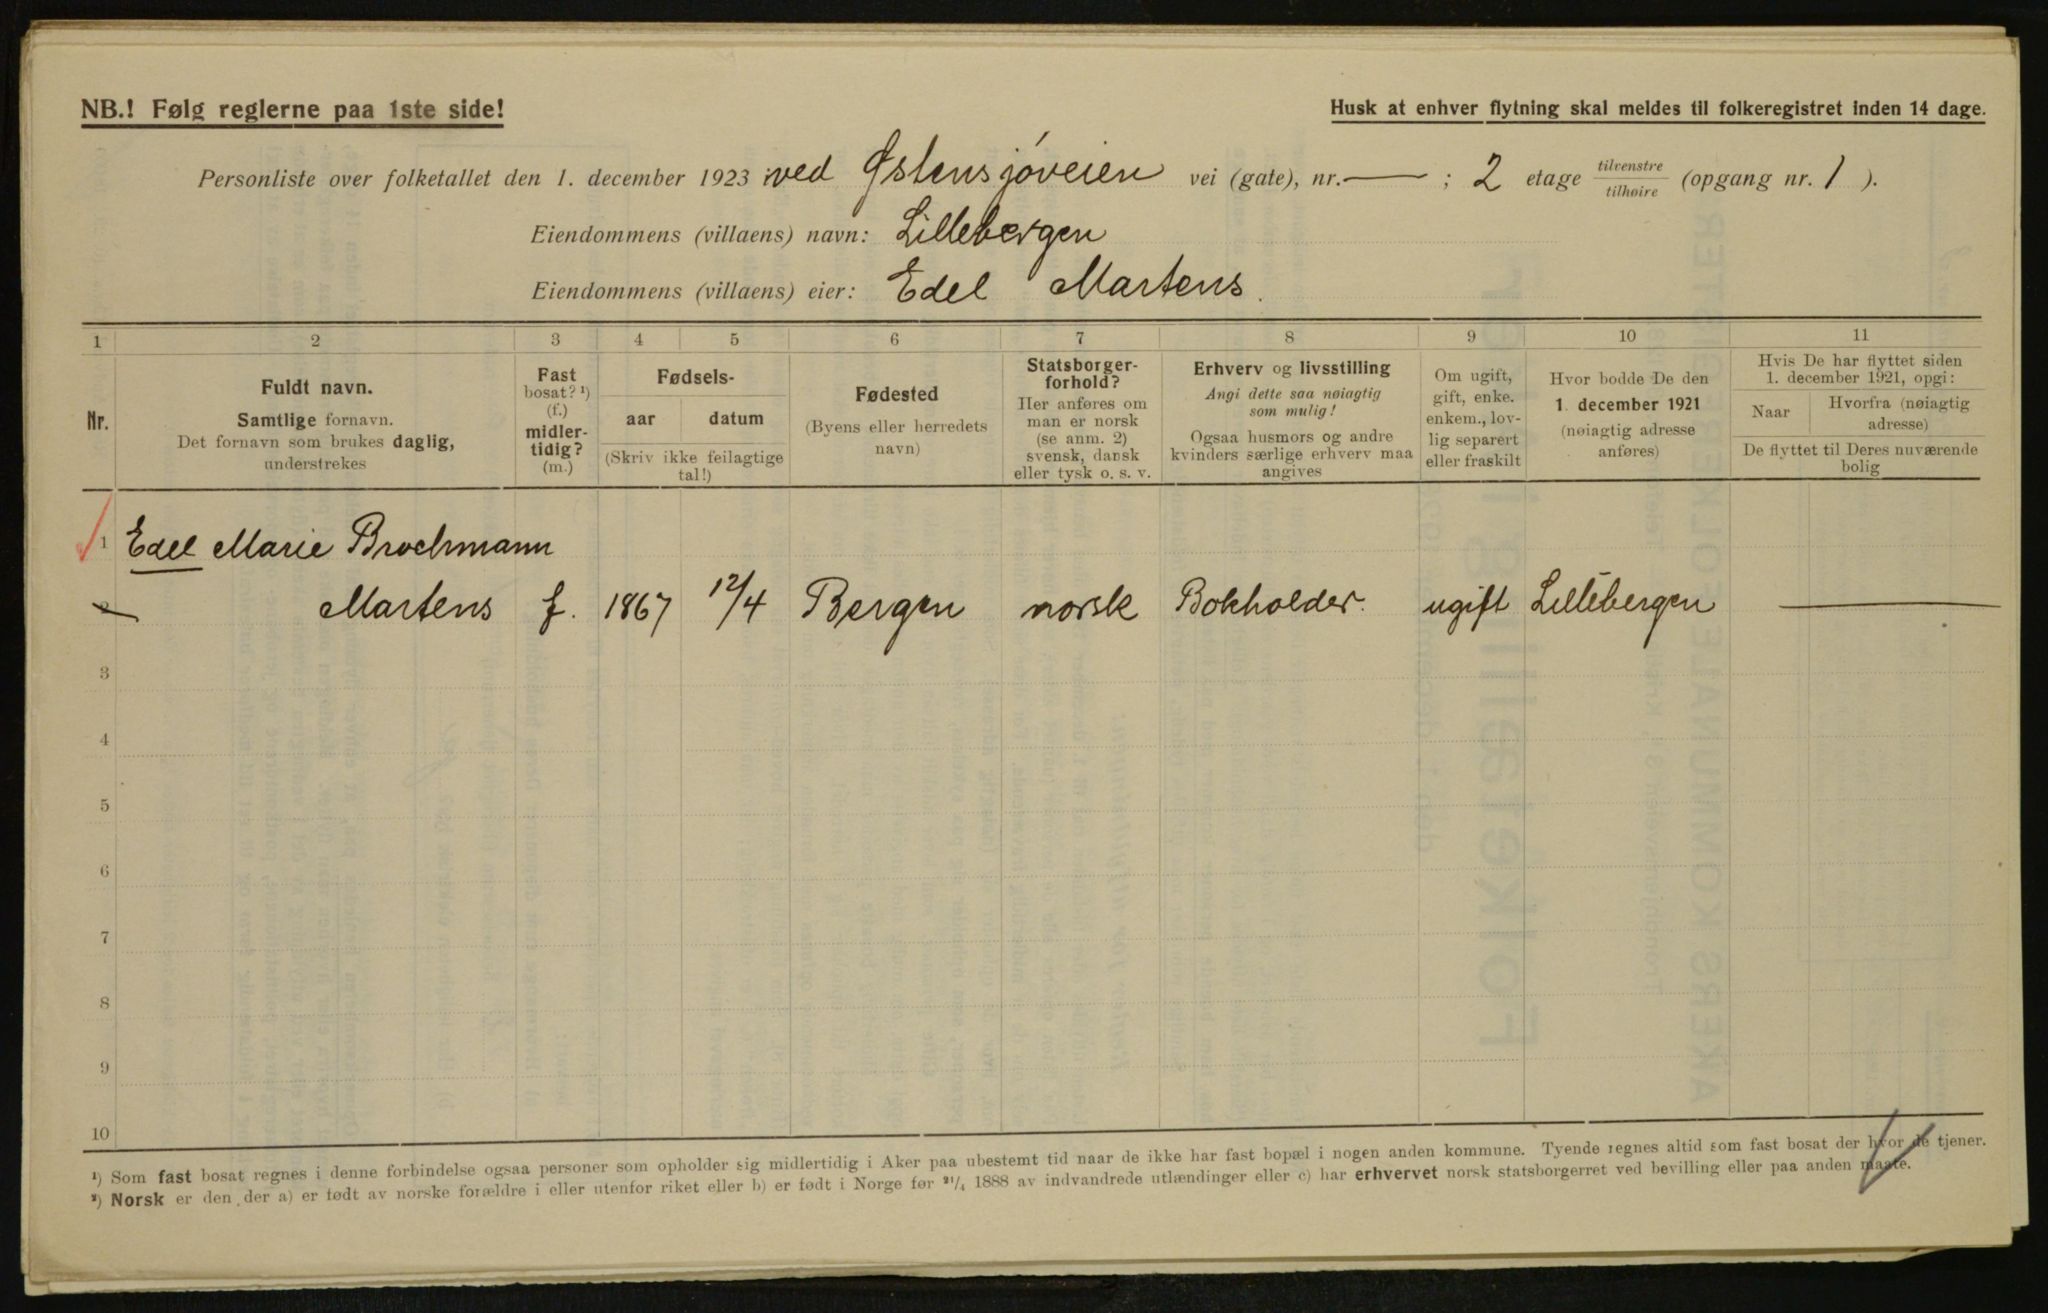 NB.! Følg reglerne paa 1ste side!
Husk at enhver flytning skal meldes til folkeregistret inden 14 dage.
Personliste over folketallet den 1. december 1923 ved Østensjøveien vei (gate), nr. — ; 2 etage tilvenstre / tilhøire (opgang nr. 1 ).
Eiendommens (villaens) navn: Lillebergen
Eiendommens (villaens) eier: Edel Martens.
1 2 3 4 5 6 7 8 9 10 11
Nr.
Fuldt navn.
Samtlige fornavn.
Det fornavn som brukes daglig,
understrekes
Fast
bosat? ¹)
(f.)
midler-
tidig?
(m.)
Fødsels-
aar datum
(Skriv ikke feilagtige
tal!)
Fødested
(Byens eller herredets
navn)
Statsborger-
forhold?
Her anføres om
man er norsk
(se anm. 2)
svensk, dansk
eller tysk o. s. v.
Erhverv og livsstilling
Angi dette saa nøiagtig
som mulig!
Ogsaa husmors og andre
kvinders særlige erhverv maa
angives
Om ugift,
gift, enke.
enkem., lov-
lig separert
eller fraskilt
Hvor bodde De den
1. december 1921
(nøiagtig adresse
anføres)
Hvis De har flyttet siden
1. december 1921, opgi:
Naar
Hvorfra (nøiagtig
adresse)
De flyttet til Deres nuværende
bolig
1 Edel Marie Brochmann
2 Martens f. 1867 12/4 Bergen norsk Bokholder. ugift Lillebergen —
3
4
5
6
7
8
9
10
¹) Som fast bosat regnes i denne forbindelse ogsaa personer som opholder sig midlertidig i Aker paa ubestemt tid naar de ikke har fast bopæl i nogen anden kommune. Tyende regnes altid som fast bosat der hvor de tjener.
²) Norsk er den, der a) er født av norske forældre i eller utenfor riket eller b) er født i Norge før 21/4 1888 av indvandrede utlændinger eller c) har erhvervet norsk statsborgerret ved bevilling eller paa anden maate.